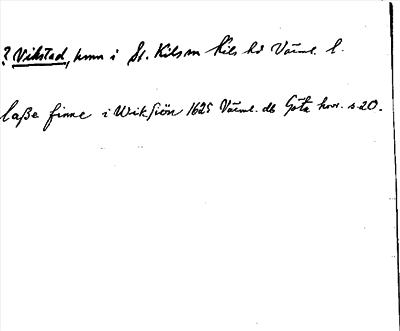 ? Vikstad, hmn i St. Kils sn Kils hd Värml. l.
laße finne i Wiksiön 1625 Värml. db Göta hovr. s 20.